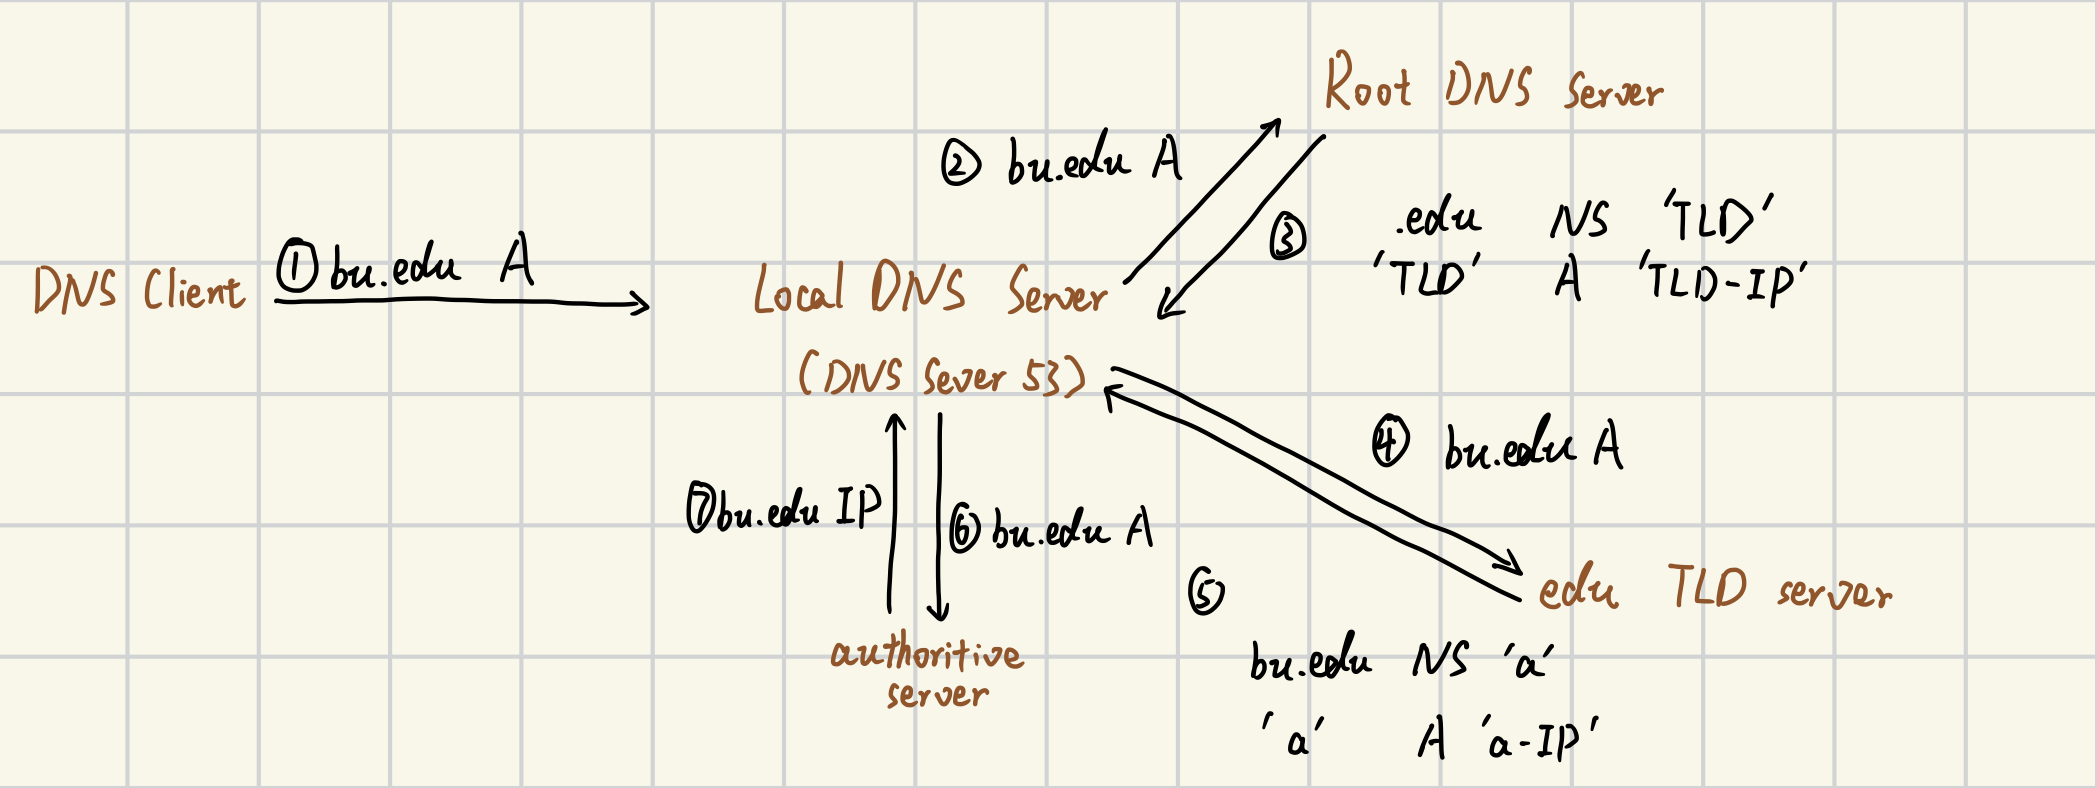 Root DNS Server
② bu.edu A
③ .edu NS 'TLD'
'TLD' A 'TLD-IP'
DNS Client
① bu.edu A
Local DNS Server
(DNS Sever 53)
④ bu.edu A
⑦ bu.edu IP
⑥ bu.edu A
edu TLD server
⑤
bu.edu NS 'a'
'a' A 'a-IP'
authoritive
server